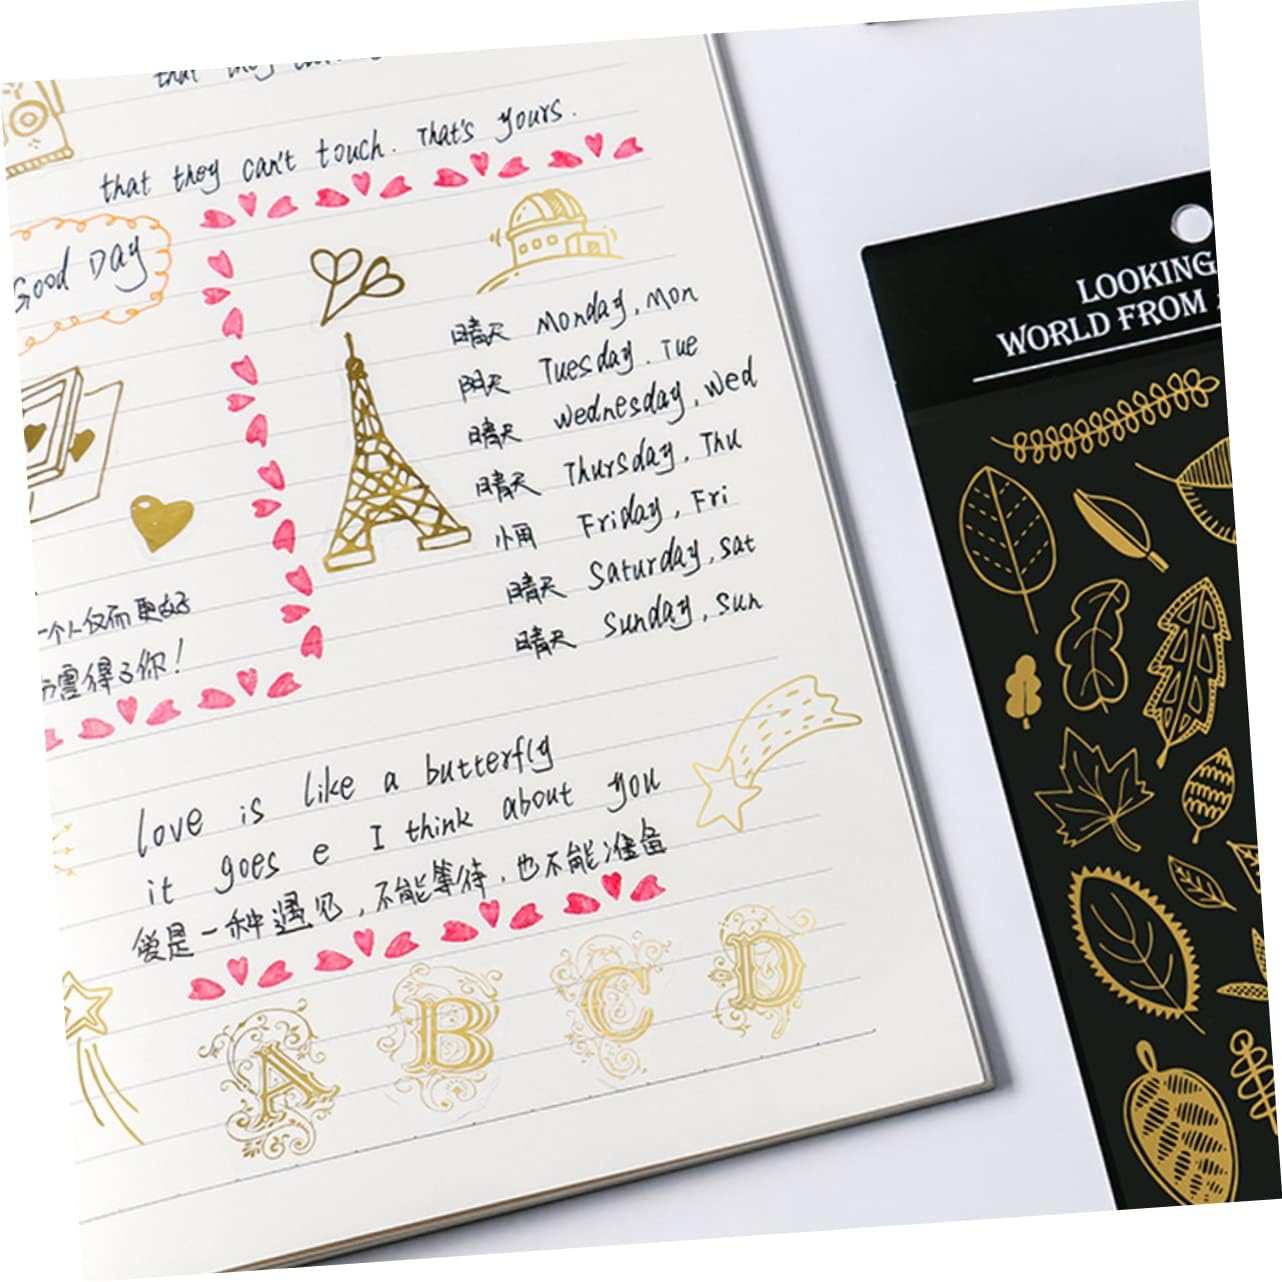 that they can't touch. That's yours.
Good Day
晴天 Monday, Mon
阴天 Tuesday. Tue
晴天 Wednesday, Wed
晴天 Thursday, Thu
小雨 Friday, Fri
晴天 Saturday, Sat
晴天 Sunday, Sun
一个人仅而更好
得了你!
Love is like a butterfly
it goes e I think about you
爱是一种遇见,不能等待,也不能准备
A B C D
LOOKING
WORLD FROM